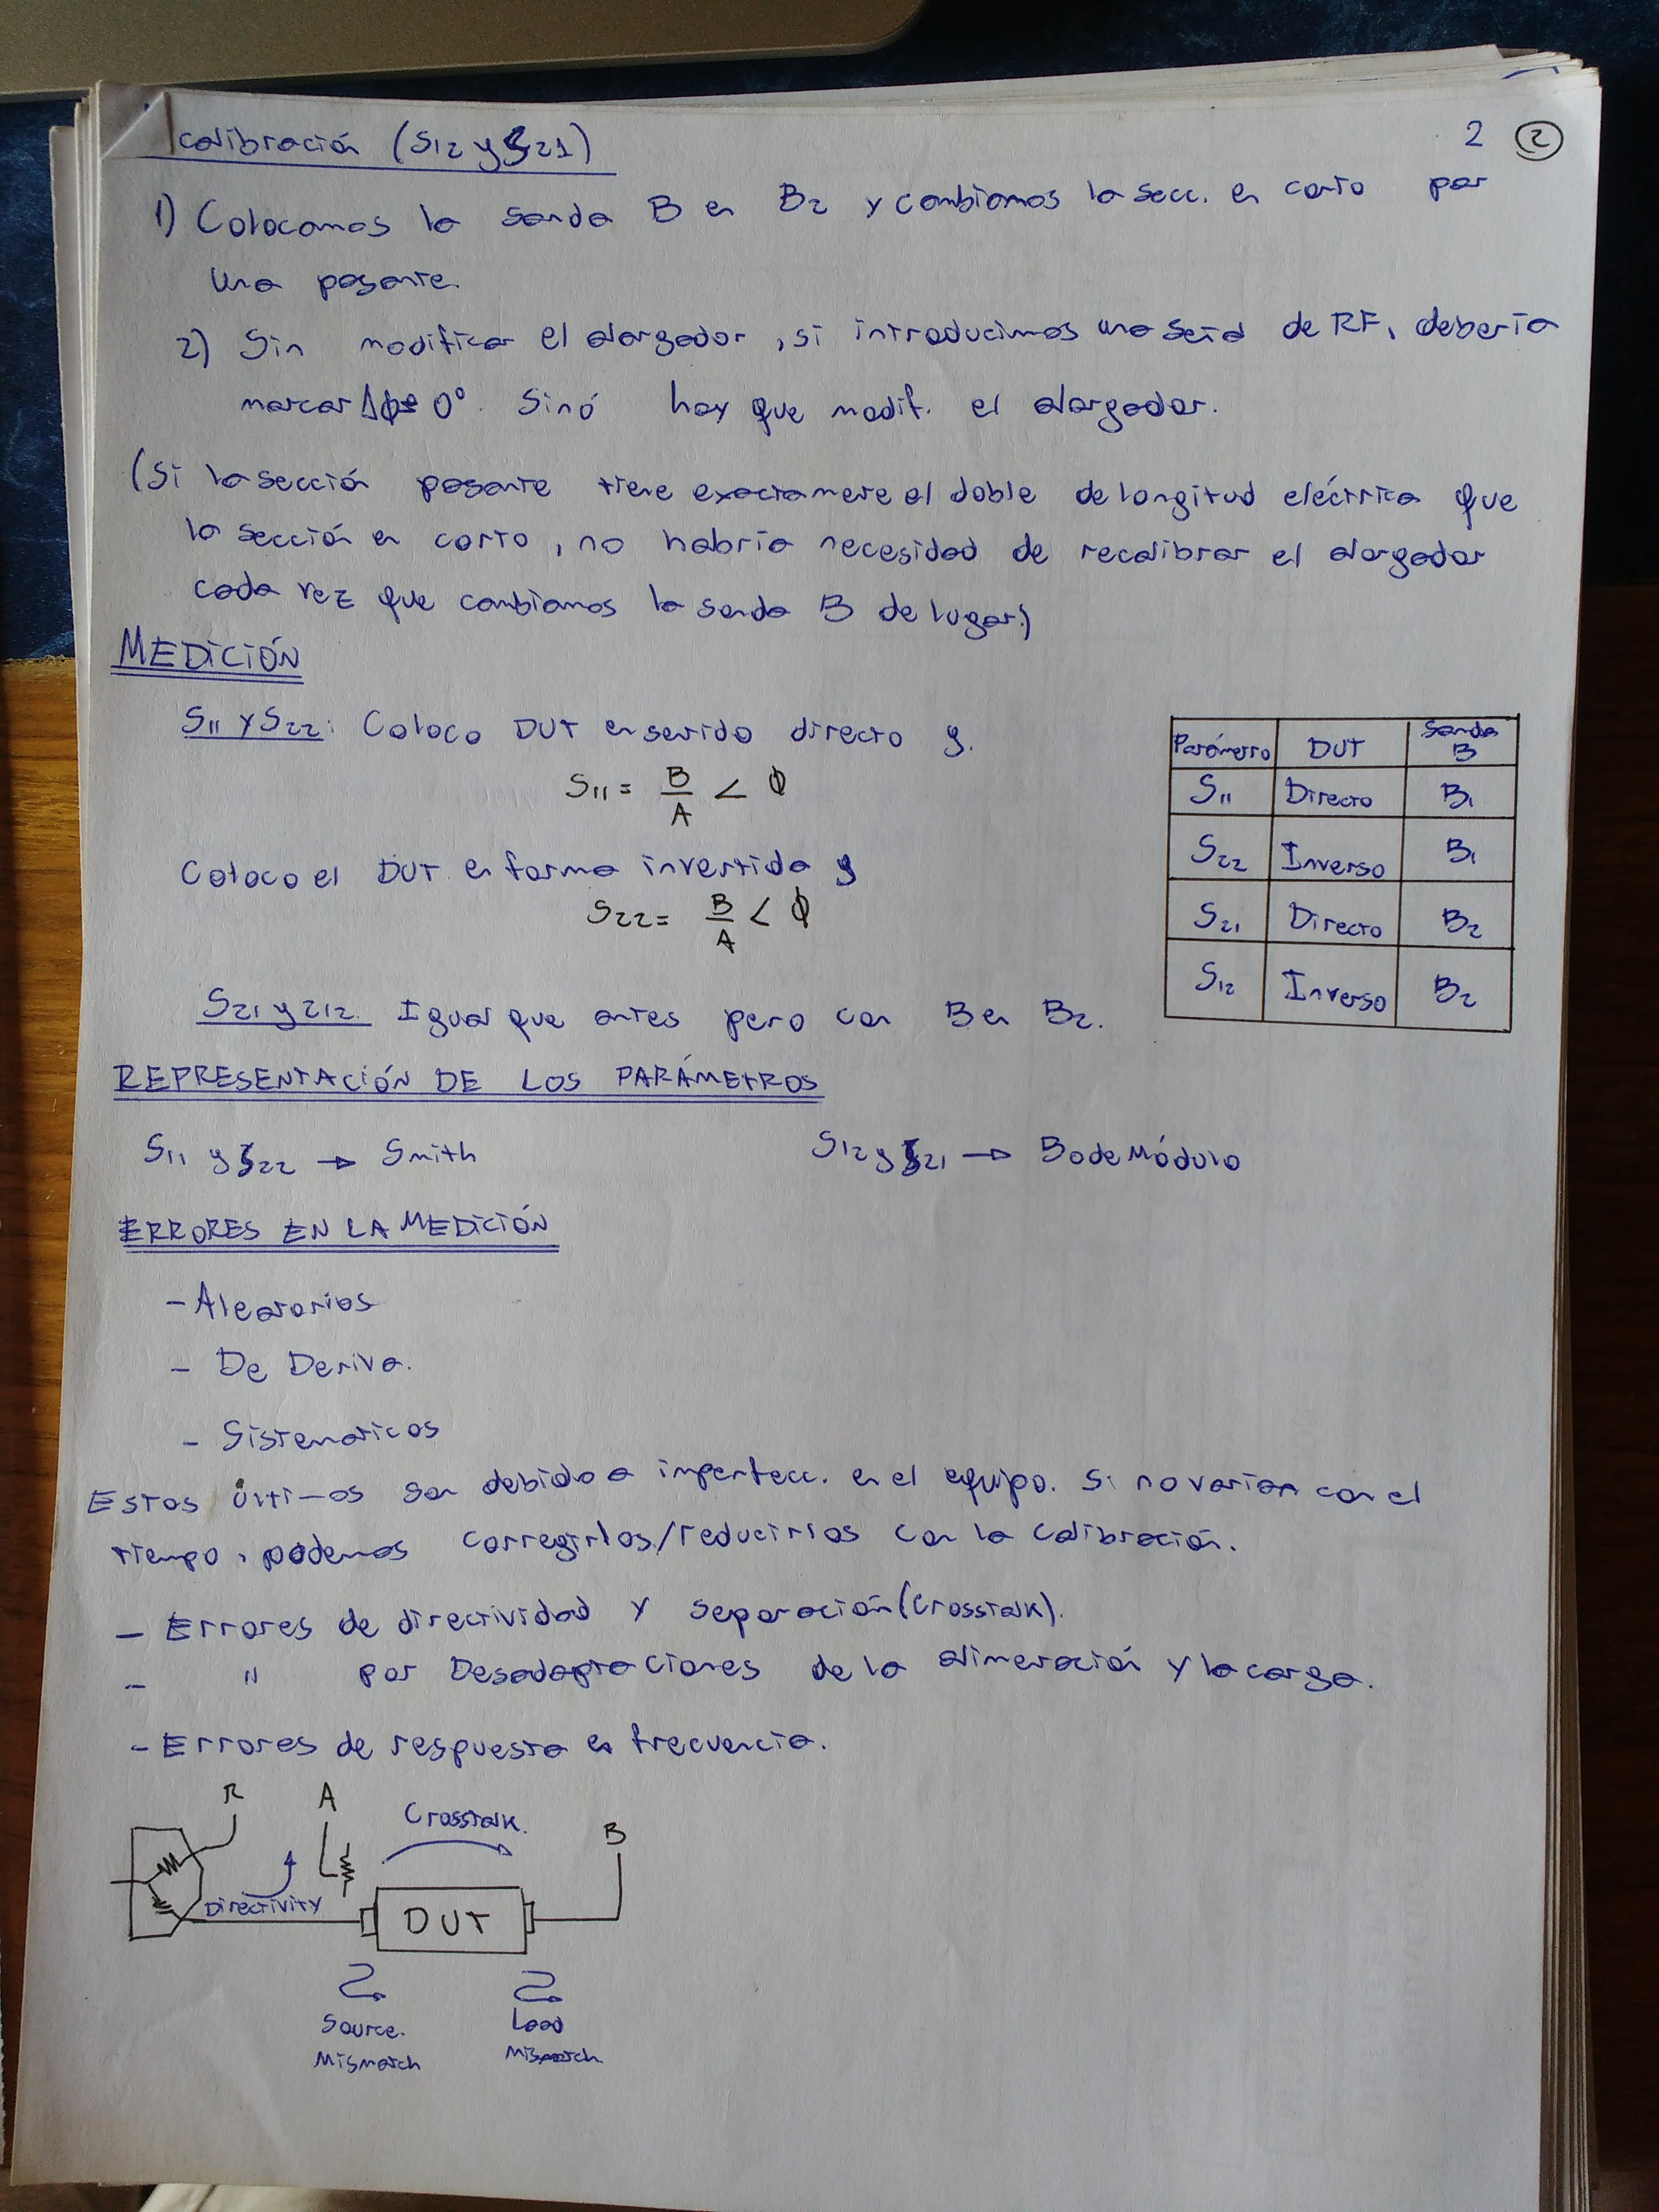 calibración (S12 y S21)
2 2
1) Colocamos la sonda B en B2 y cambiamos la secc. en corto por
una pasante.
2) Sin modificar el alargador, si introducimos una señal de RF, debería
marcar Δϕ= 0°. Sinó hay que modif. el alargador.
(Si la sección pasante tiene exactamente el doble de longitud eléctrica que
la sección en corto, no habría necesidad de recalibrar el alargador
cada vez que cambiamos la sonda B de lugar.)
MEDICIÓN
S11 y S22: Coloco DUT en sentido directo y.
S11 = B/A < ϕ
Coloco el DUT en forma invertida y
S22 = B/A < ϕ
S21 y 212. Igual que antes pero con B en B2.
Parámetro DUT Sonda B
S11 Directo B1
S22 Inverso B1
S21 Directo B2
S12 Inverso B2
REPRESENTACIÓN DE LOS PARÁMETROS
S11 y S22 → Smith S12 y S21 → Bode Módulo
ERRORES EN LA MEDICIÓN
- Aleatorios
- De Deriva.
- Sistematicos
Estos últimos son debido a imperfecc. en el equipo. Si no varían con el
tiempo, podemos corregirlos/reducirlos con la calibración.
- Errores de directividad y separación (Crosstalk).
- " por Desadaptaciones de la alimentación y la carga.
- Errores de respuesta en frecuencia.
R A Crosstalk. B
Directivity
DUT
Source. Load
Mismatch Mismatch.